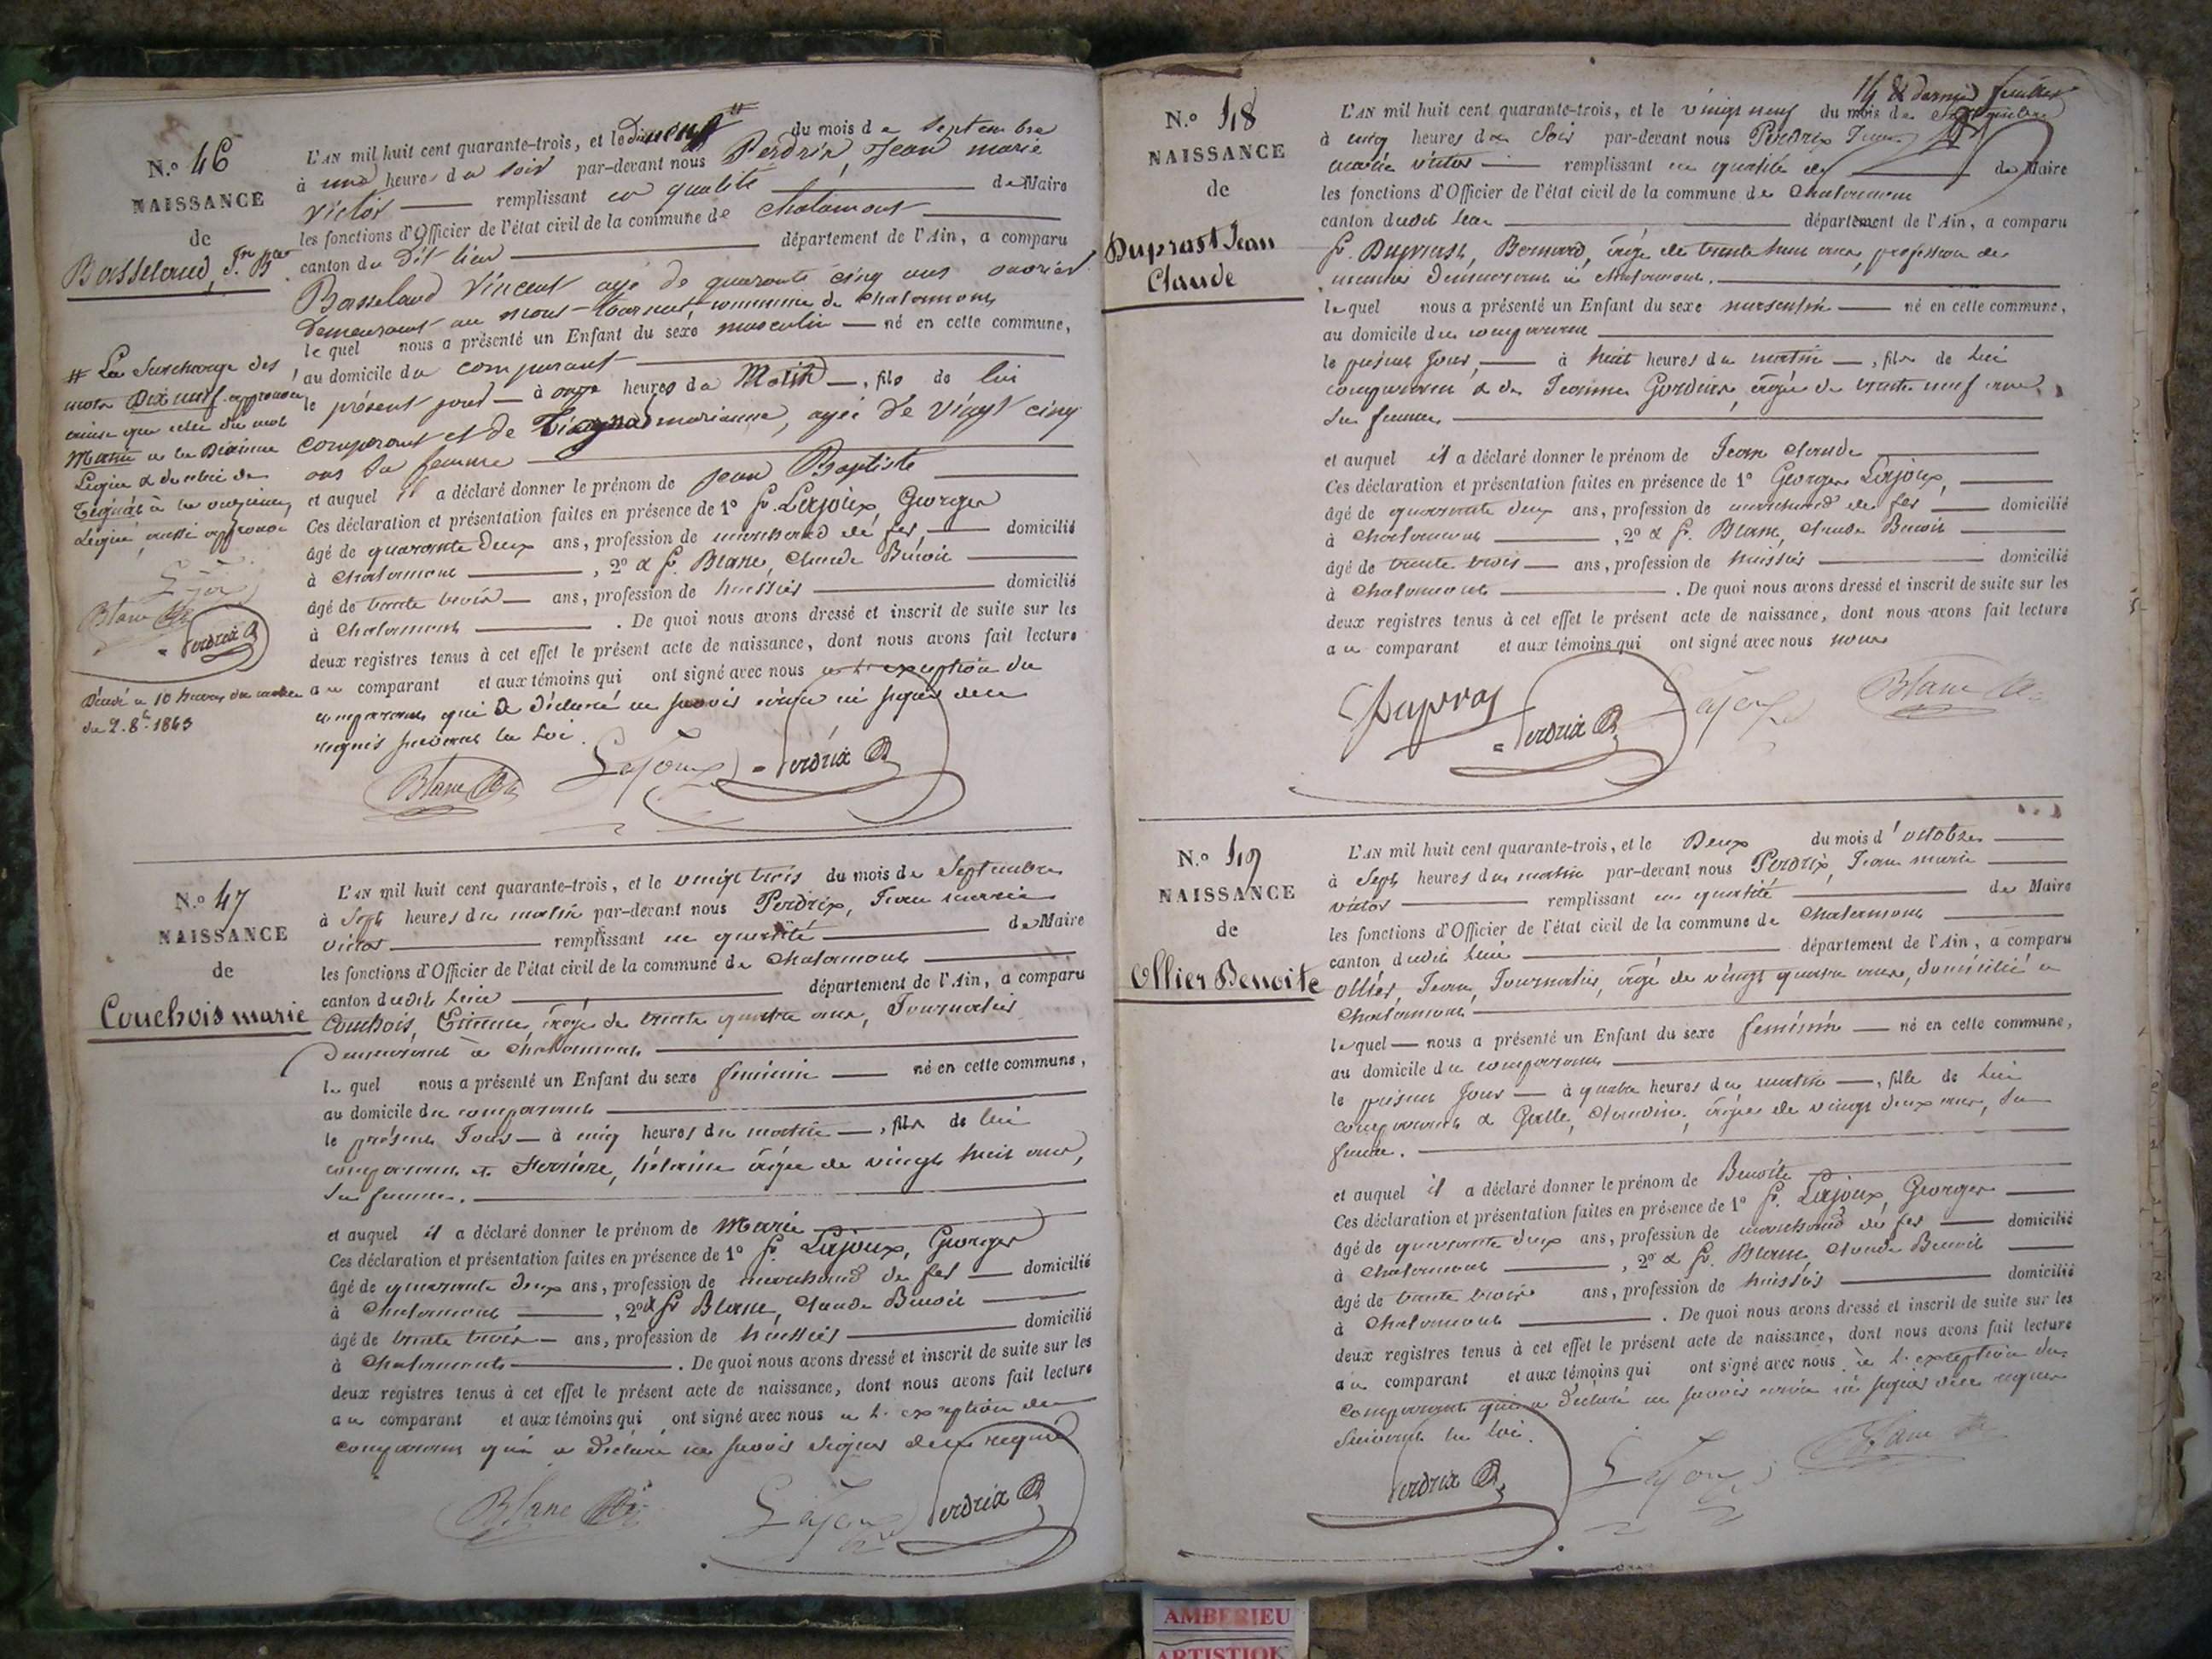 N.º 46
NAISSANCE
de
Basseland, J.n B.te
L'AN mil huit cent quarante-trois, et le dix neuf # du mois de septembre
à une heure du soir par-devant nous Perdrix, Jean marie
victor remplissant en qualité de Maire
les fonctions d'Officier de l'état civil de la commune de chalamont
canton du dit lieu département de l'Ain, a comparu
Basseland Vincent agé de quarante cinq ans ouvrier
demeurant au mont-tournut, commune de chalamont
le quel nous a présenté un Enfant du sexe masculin né en cette commune,
au domicile du comparant
le présent jour à onze heures du Matin, fils de lui
comparant et de marianne, agée de vingt cinq
ans sa femme
et auquel il a déclaré donner le prénom de jean Baptiste
Ces déclaration et présentation faites en présence de 1º Sr. Lajoux, Georges
âgé de quarante deux ans, profession de marchand de fer, domicilié
à chalamont, 2º & Sr. Blanc, Claude Benoit
âgé de trente trois ans, profession de huissier domicilié
à chalamont. De quoi nous avons dressé et inscrit de suite sur les
deux registres tenus à cet effet le présent acte de naissance, dont nous avons fait lecture
au comparant et aux témoins qui ont signé avec nous à l'exception du
comparant qui a déclaré ne savoir écrire ni signer de ce
requis suivant la loi.
Blanc Lajoux Perdrix
# La surcharge des
mots Dix neuf approuvée
ainsi que celle du mot
Matin à la Dixième
Ligne & de celui de
à la onzième
Ligne, aussi approuvé
Lajoux
Blanc
Perdrix
Décédé à 10 heures du matin
du 2. 8.bre 1843
N.º 47
NAISSANCE
de
Couchois marie
L'AN mil huit cent quarante-trois, et le vingt trois du mois de Septembre
à Sept heures du matin par-devant nous Perdrix, Jean marie
victor remplissant en qualité de Maire
les fonctions d'Officier de l'état civil de la commune de Chalamont
canton dudit Lieu département de l'Ain, a comparu
Couchois, Etienne, âgé de trente quatre ans, Journalier
demeurant à Chalamont
le quel nous a présenté un Enfant du sexe feminin né en cette commune,
au domicile du comparant
le présent Jour à cinq heures du matin, fille de lui
comparant et Ferriere, hélaine âgée de vingt huit ans,
sa femme.
et auquel il a déclaré donner le prénom de Marie
Ces déclaration et présentation faites en présence de 1º Sr. Lajoux, Georges
âgé de quarante deux ans, profession de marchand de fer domicilié
à Chalamont, 2º & Sr Blanc, Claude Benoit
âgé de trente trois ans, profession de huissier domicilié
à Chalamont. De quoi nous avons dressé et inscrit de suite sur les
deux registres tenus à cet effet le présent acte de naissance, dont nous avons fait lecture
au comparant et aux témoins qui ont signé avec nous à l'exception du
comparant qui a déclaré ne savoir signer de ce requis
Blanc Lajoux Perdrix
14 & dernier feuillet
N.º 48
NAISSANCE
de
Duprast Jean
Claude
L'AN mil huit cent quarante-trois, et le vingt neuf du mois de septembre
à cinq heures du Soir par-devant nous Perdrix Jean
marie victor remplissant en qualité de Maire
les fonctions d'Officier de l'état civil de la commune de Chalamont
canton dudit Lieu département de l'Ain, a comparu
Sr. Duprast, Bernard, âgé de trente huit ans, profession de
demeurant à chalamont.
le quel nous a présenté un Enfant du sexe masculin né en cette commune,
au domicile du comparant
le présent Jour, à huit heures du matin, fils de lui
comparant & de Jeanne Gordiere, âgée de trente neuf ans,
sa femme
et auquel il a déclaré donner le prénom de Jean Claude
Ces déclaration et présentation faites en présence de 1º Georges Lajoux,
âgé de quarante deux ans, profession de marchand de fer domicilié
à chalamont, 2º & Sr. Blanc, Claude Benoit
âgé de trente trois ans, profession de huissier domicilié
à Chalamont. De quoi nous avons dressé et inscrit de suite sur les
deux registres tenus à cet effet le présent acte de naissance, dont nous avons fait lecture
au comparant et aux témoins qui ont signé avec nous
Dupras Perdrix Lajoux Blanc
N.º 49
NAISSANCE
de
Ollier Benoite
L'AN mil huit cent quarante-trois, et le Deux du mois d'octobre
à Sept heures du matin par-devant nous Perdrix, Jean marie
victor remplissant en qualité de Maire
les fonctions d'Officier de l'état civil de la commune de Chalamont
canton dudit Lieu département de l'Ain, a comparu
Ollier, Jean, Journalier, âgé de vingt quatre ans, domicilié à
Chalamont
le quel nous a présenté un Enfant du sexe feminin né en cette commune,
au domicile du comparant
le présent Jour à quatre heures du matin, fille de Lui
comparant & Galle, Claudine, âgée de vingt deux ans, sa
femme.
et auquel il a déclaré donner le prénom de Benoite
Ces déclaration et présentation faites en présence de 1º Sr. Lajoux, Georges
âgé de quarante deux ans, profession de marchand de fer domicilié
à Chalamont, 2º & Sr. Blanc, Claude Benoit
âgé de trente trois ans, profession de huissier domicilié
à Chalamont. De quoi nous avons dressé et inscrit de suite sur les
deux registres tenus à cet effet le présent acte de naissance, dont nous avons fait lecture
au comparant et aux témoins qui ont signé avec nous à l'exception du
comparant qui a déclaré ne savoir écrire ni signer de ce requis
suivant la loi.
Perdrix Lajoux Blanc
AMBERIEU